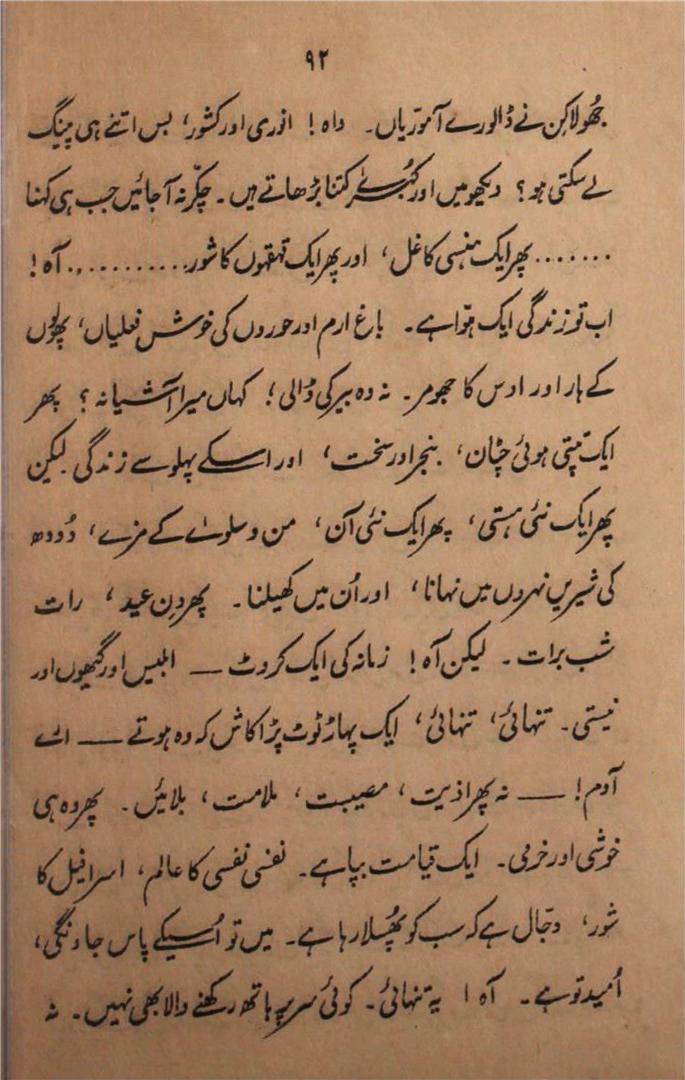 ۹۲
جُھولا کِن نے ڈالو رے آموریاں۔ واہ! انوری اور کشور، بس اتنے ہی پینگ
لے سکتی ہو؟ دیکھو میں اور کبریٰ کتنا بڑھاتے ہیں۔ چکّر نہ آجائیں جب ہی کہنا
....... پھر ایک ہنسی کا غل، اور پھر ایک قہقہوں کا شور........... آہ!
اب تو زندگی ایک ہوّا ہے۔ باغ ارم اور حوروں کی خوش فعلیاں، پھولوں
کے ہار اور اوس کا جھومر۔ نہ وہ بیر کی ڈالی! کہاں میرا آشیانہ؟ پھر
ایک تپتی ہوئی چٹان، بنجر اور سخت، اور اسکے پہلو سے زندگی لیکن
پھر ایک نئی ہستی، پھر ایک نئی آن، من و سلویٰ کے مزے، دُودھ
کی شیریں نہروں میں نہانا، اور اُن میں کھیلنا۔ پھر دِن عید، رات
شب برات۔ لیکن آہ! زمانہ کی ایک کروٹ — ابلیس اور گیہوں اور
نیستی۔ تنہائی، تنہائی، ایک پہاڑ ٹوٹ پڑا کاش کہ وہ ہوتے — اے
آدم! — نہ پھر اذیت، مصیبت، ملامت، بلائیں۔ پھر وہ ہی
خوشی اور خرمی۔ ایک قیامت بپا ہے۔ نفسی نفسی کا عالم، اسرافیل کا
شور، دجّال ہے کہ سب کو پُھسلا رہا ہے۔ میں تو اُسیکے پاس جاونگی،
اُمید تو ہے۔ آہ! یہ تنہائی۔ کوئی سر پر ہاتھ رکھنے والا بھی نہیں۔ نہ